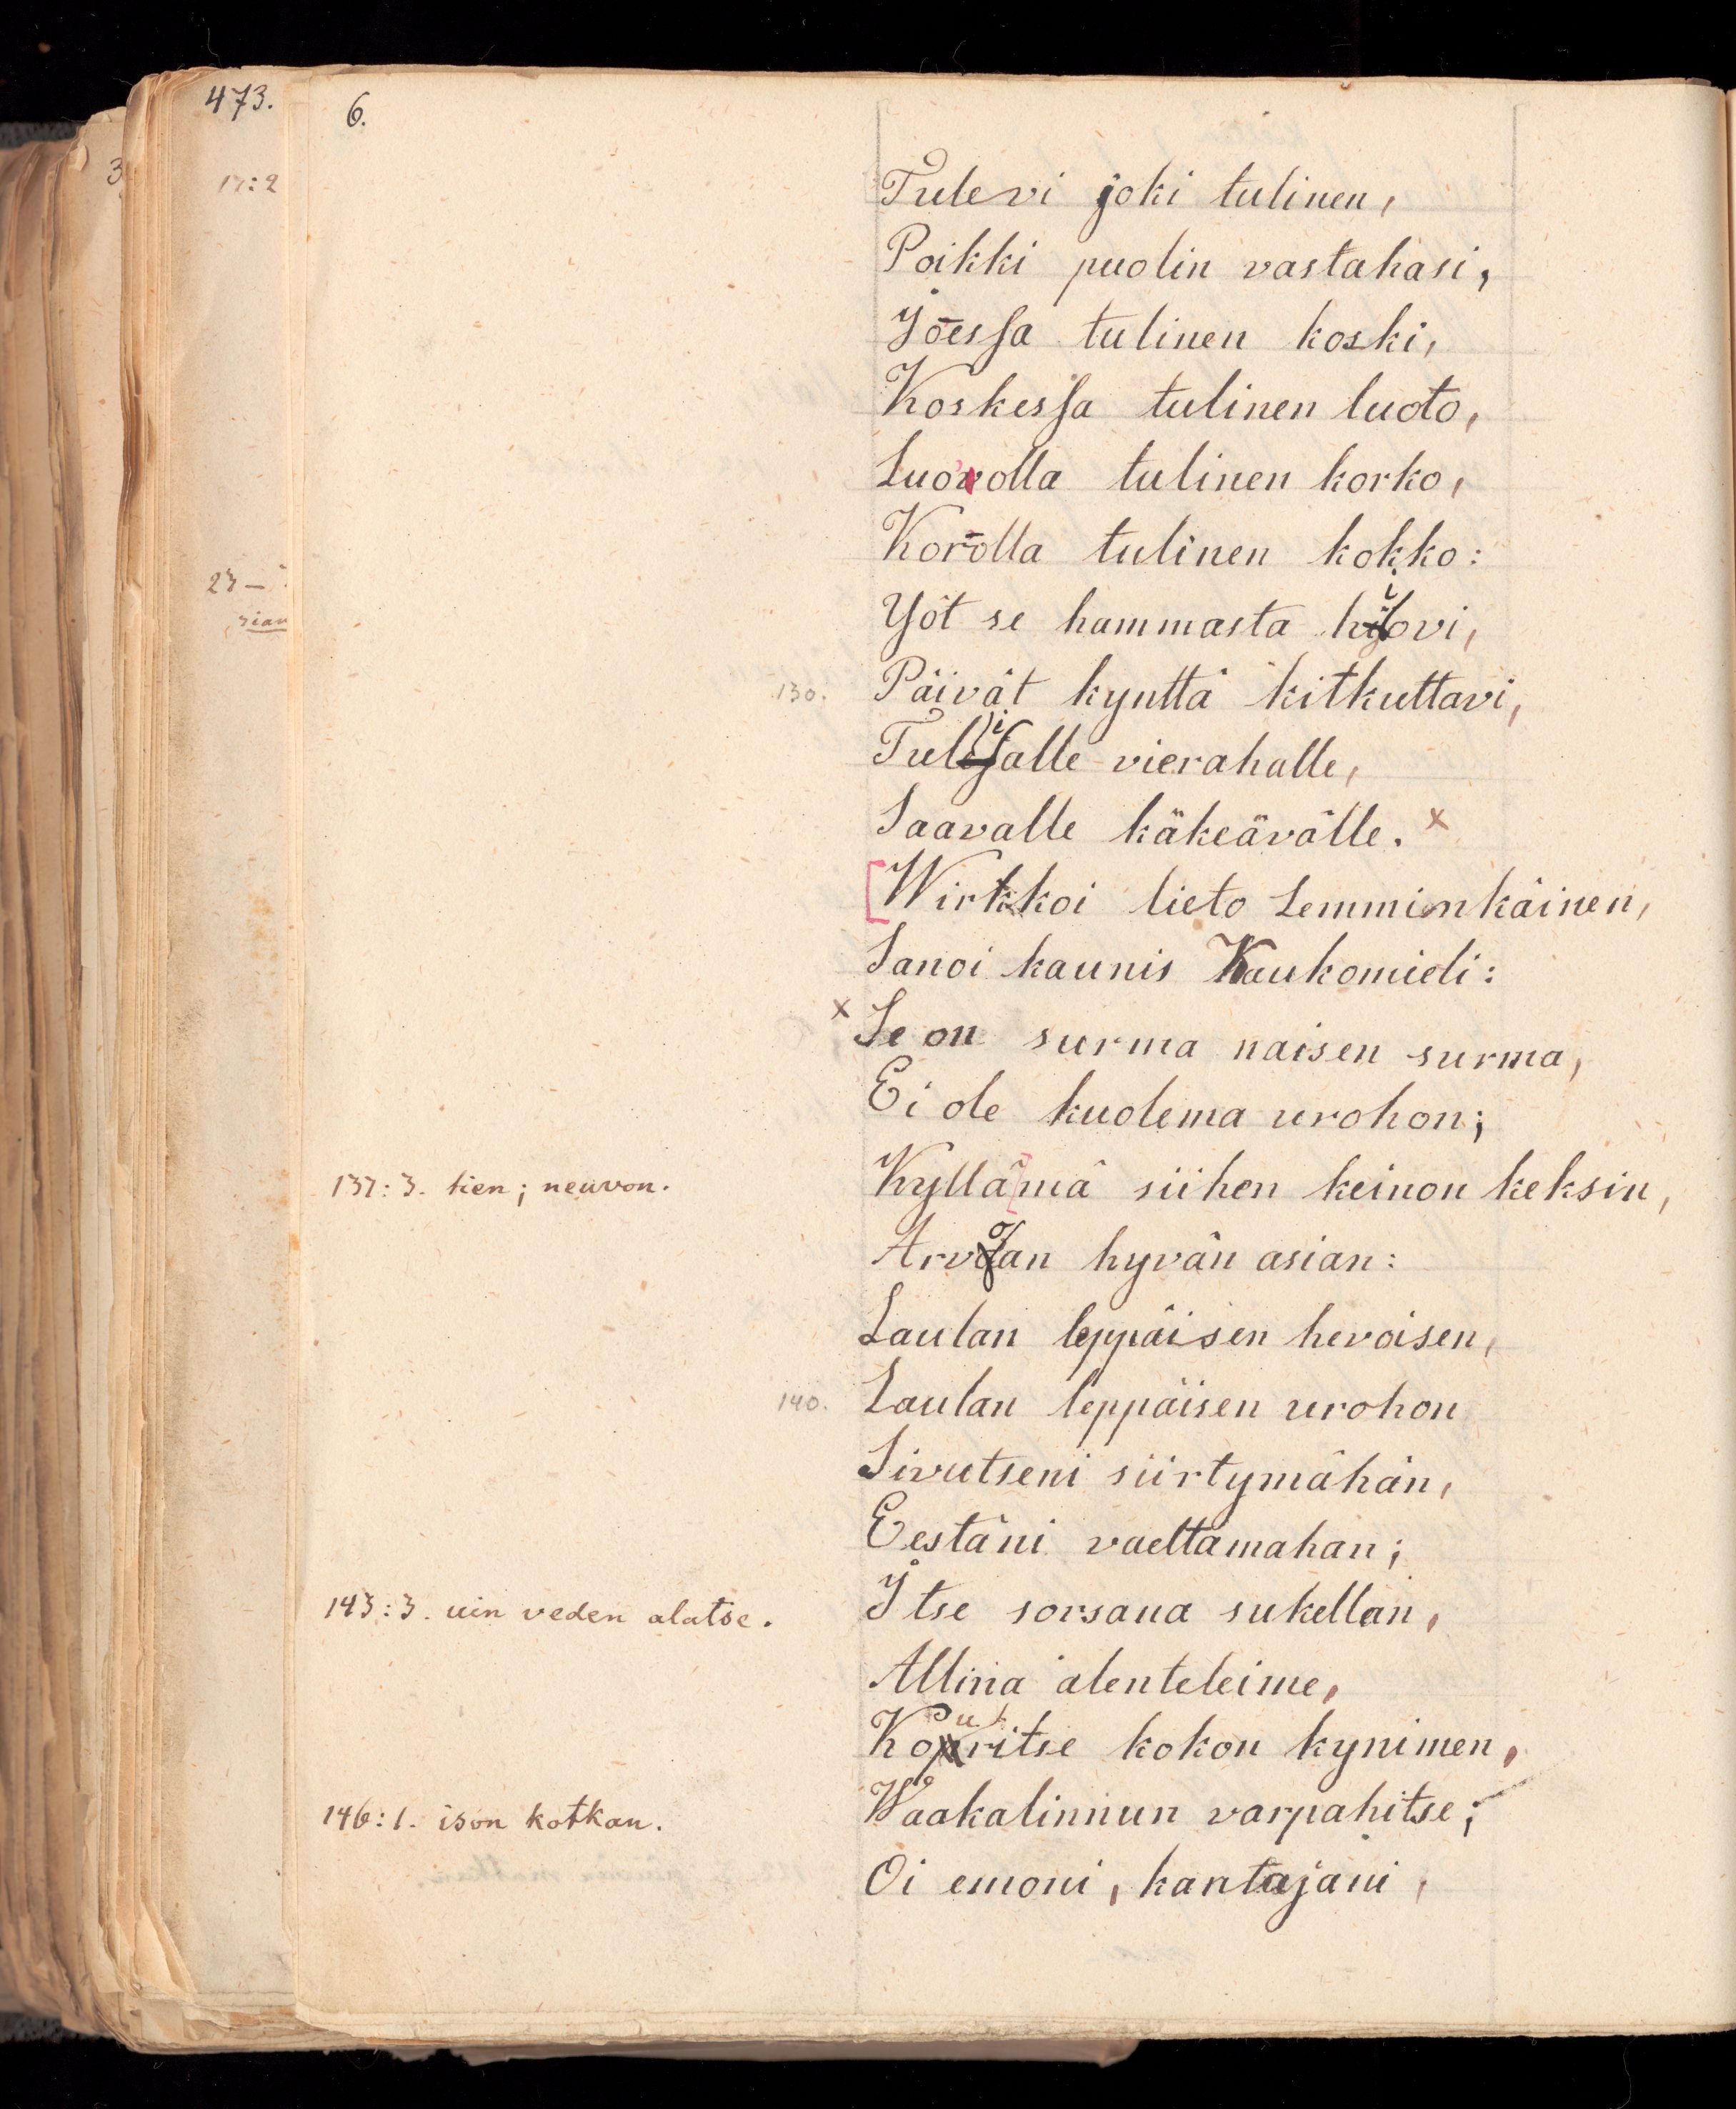 473.
6.
3
17:2
Tulevi joki tulinen,
Poikki puolin vastahasi,
Joessa tulinen koski,
Koskessa tulinen luoto,
Luo'olla tulinen korko,
Korolla tulinen kokko:
23 –
Yöt se hammasta hiovi,
130. Päivät kynttä kitkuttavi,
Tulijalle vierahalle,
Saavalle käkeävälle. x
[Wirkkoi lieto Lemminkäinen,
Sanoi kaunis Kaukomieli:
x Se on surma naisen surma,
Ei ole kuolema urohon;
137: 3. tien; neuvon.
Kyllä[mä siihen keinon keksin,
Arvoan hyvän asian:
Laulan leppäisen hevoisen,
140. Laulan leppäisen urohon
Sivutseni siirtymähän,
Eestäni vaeltamahan;
143: 3. uin veden alatse.
Itse sorsana sukellan,
Allina alenteleime,
Kouritse kokon kynimen,
146: 1. ison kotkan.
Waakalinnun varpahitse;
Oi emoni, kantajani,